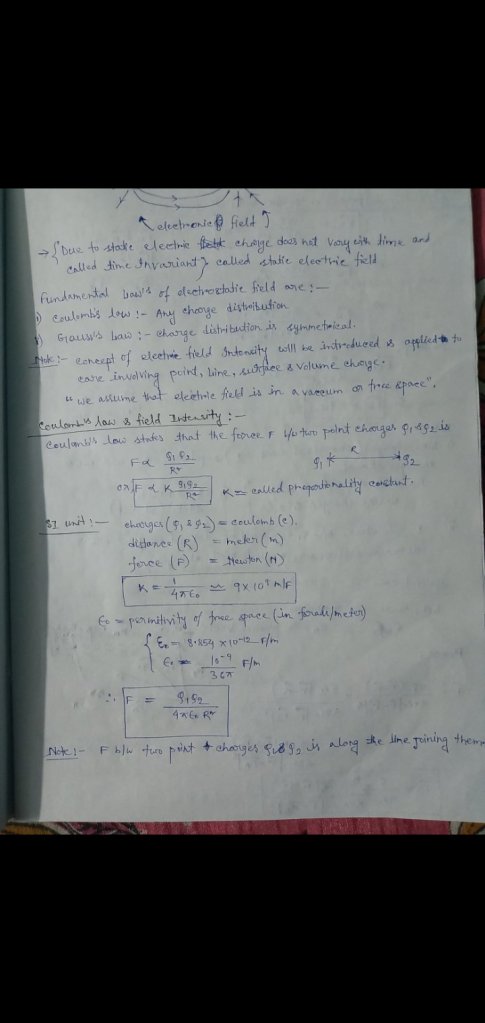 electronic field
→ { Due to static electric charge does not vary with time and
called time Invariant } called static electric field
Fundamental law's of electrostatic field are :—
) Coulomb's law :- Any charge distribution
) Gauss's law :- charge distribution is symmetrical.
Note :- concept of electric field Intensity will be introduced & applied to
care involving point, line, surface & volume charge.
"we assume that electric field is in a vaccum or free space".
Coulomb's law & field Intensity :—
Coulomb's law states that the force F b/w two point charges Q₁ & Q₂ is
F ∝ Q₁Q₂/R²
R
Q₁ Q₂
or F ∝ K Q₁Q₂/R² K = called proportionality constant.
SI unit :— charges (Q₁ & Q₂) = coulomb (c).
distance (R) = meter (m)
force (F) = Newton (N)
K = 1/4πε₀ ≃ 9 × 10⁹ m/F
ε₀ = permitivity of free space (in farads/meter)
{ ε₀ = 8.854 × 10⁻¹² F/m
ε₀ = 10⁻⁹/36π F/m
∴ F = Q₁Q₂/4πε₀R²
Note :- F b/w two point charges Q₁ & Q₂ is along the line joining them